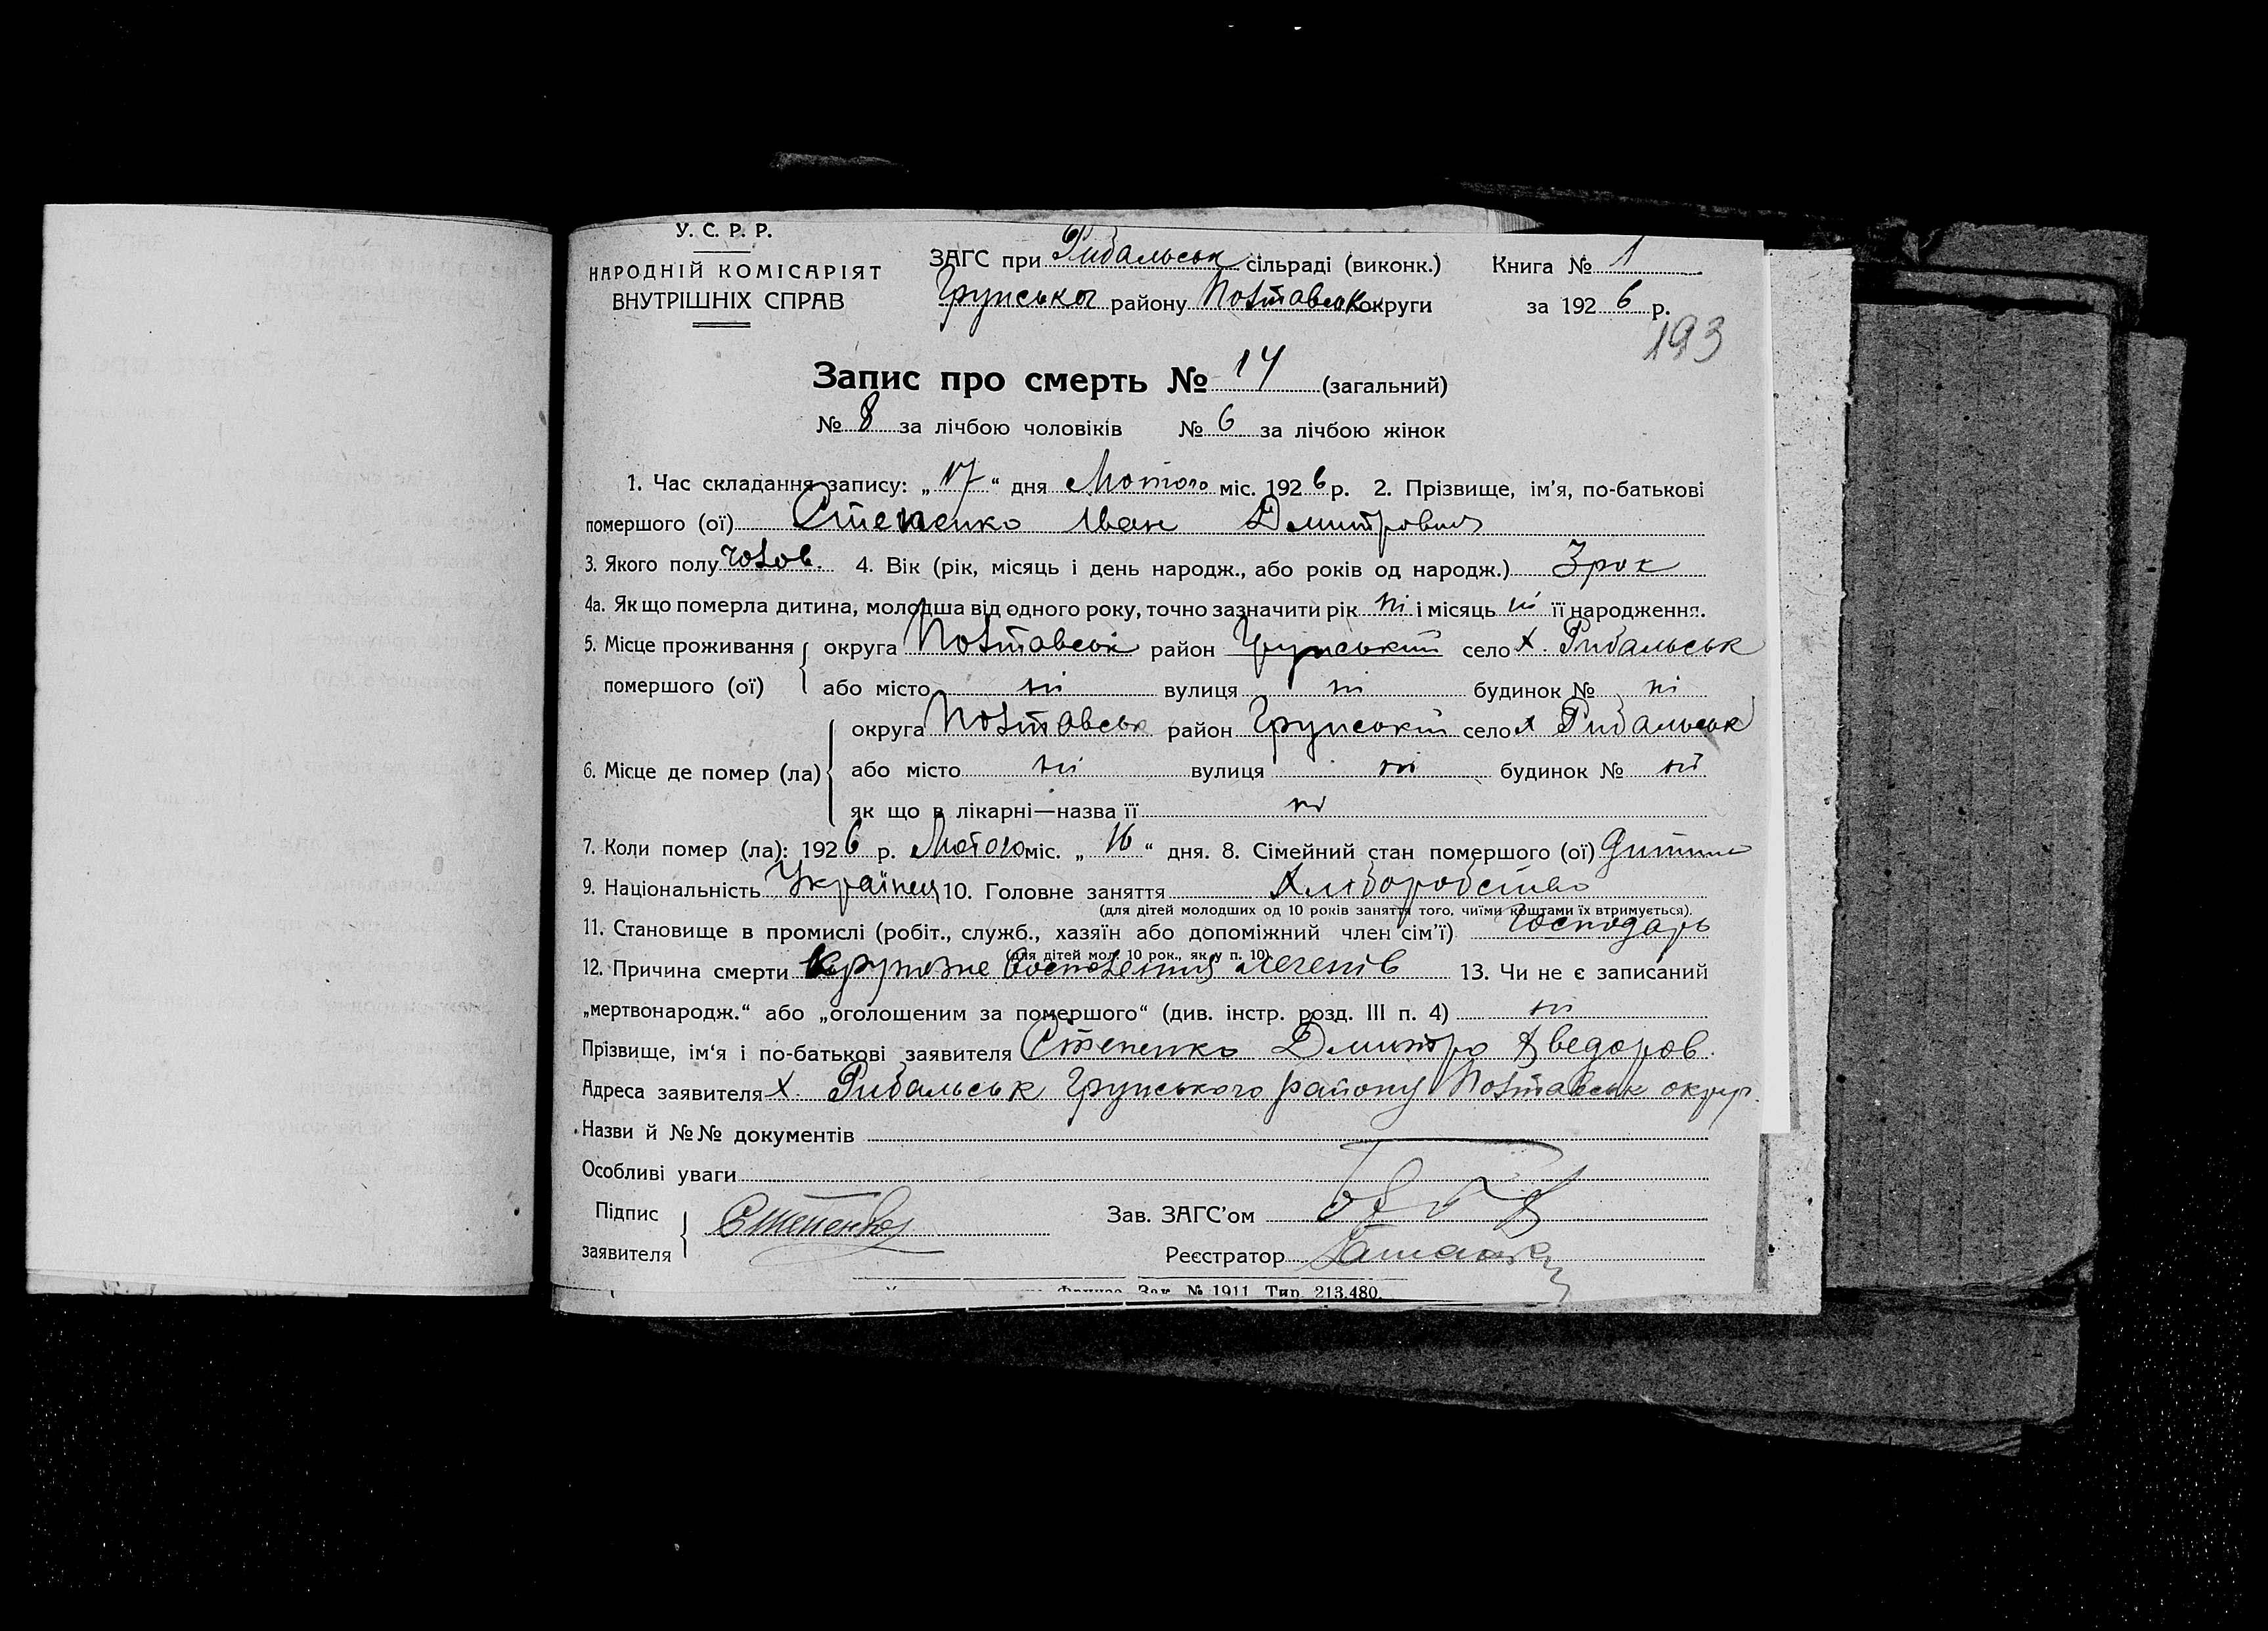 У. С. Р. Р.
НАРОДНІЙ КОМІСАРІЯТ
ВНУТРІШНІХ СПРАВ
ЗАГС при Рибальськ сільраді (виконк.) Книга № 1
Грунської району Полтавськ округи за 1926 р.
193
Запис про смерть № 14 (загальний)
№ 8 за лічбою чоловіків № 6 за лічбою жінок
1. Час складання запису: „17“ дня Лютого міс. 1926 р. 2. Прізвище, ім'я, по-батькові
помершого (ої) Степенко Іван Дмитрович
3. Якого полу чолов. 4. Вік (рік, місяць і день народж., або років од народж.) 3 рок
4а. Як що померла дитина, молодша від одного року, точно зазначити рік ні і місяць ні її народження.
5. Місце проживання округа Полтавськ район Грунський село х. Рибальськ
помершого (ої) або місто ні вулиця ні будинок № ні
округа Полтавськ район Грунський село х Рибальськ
6. Місце де помер (ла) або місто ні вулиця ні будинок № ні
як що в лікарні—назва її ні
7. Коли помер (ла): 1926 р. Лютого міс. „16“ дня. 8. Сімейний стан помершого (ої) дитина
9. Національність Українец 10. Головне заняття Хліборобство
(для дітей молодших од 10 років заняття того, чиїми коштами їх втримується).
11. Становище в промислі (робіт., служб., хазяїн або допоміжний член сім'ї) Господарь
(для дітей мол. 10 рок., як у п. 10).
12. Причина смерти Крупозне восполения легенів 13. Чи не є записаний
„мертвонародж.“ або „оголошеним за помершого“ (див. інстр. розд. III п. 4) ні
Прізвище, ім'я і по-батькові заявителя Степенко Дмитро Хведоров.
Адреса заявителя х Рибальськ Грунського району Полтавськ округ.
Назви й №№ документів
Особливі уваги
Підпис
заявителя Степенко
Зав. ЗАГС'ом
Реєстратор
Зак. № 1911 Тир. 213.480.